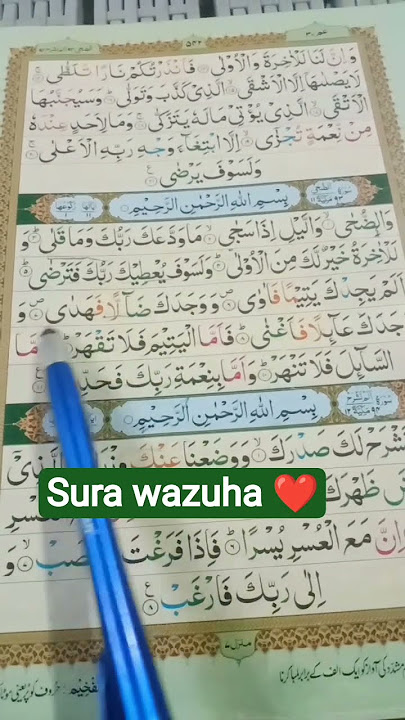 عم ٣٠
٥٤٢
وَاِنَّ لَنَا لَلْاٰخِرَةَ وَالْاُوْلٰى ۝ فَاَنْذَرْتُكُمْ نَارًا تَلَظّٰى ۝
لَا يَصْلٰىهَآ اِلَّا الْاَشْقَى ۝ الَّذِيْ كَذَّبَ وَتَوَلّٰى ۝ وَسَيُجَنَّبُهَا
الْاَتْقَى ۝ الَّذِيْ يُؤْتِيْ مَالَهٗ يَتَزَكّٰى ۝ وَمَا لِاَحَدٍ عِنْدَهٗ
مِنْ نِّعْمَةٍ تُجْزٰٓى ۝ اِلَّا ابْتِغَآءَ وَجْهِ رَبِّهِ الْاَعْلٰى ۝
وَلَسَوْفَ يَرْضٰى ۝
بِسْمِ اللّٰهِ الرَّحْمٰنِ الرَّحِيْمِ
وَالضُّحٰى ۝ وَالَّيْلِ اِذَا سَجٰى ۝ مَا وَدَّعَكَ رَبُّكَ وَمَا قَلٰى ۝ وَ
لَلْاٰخِرَةُ خَيْرٌ لَّكَ مِنَ الْاُوْلٰى ۝ وَلَسَوْفَ يُعْطِيْكَ رَبُّكَ فَتَرْضٰى ۝
اَلَمْ يَجِدْكَ يَتِيْمًا فَاٰوٰى ۝ وَوَجَدَكَ ضَآلًّا فَهَدٰى ۝ وَ
وَجَدَكَ عَآئِلًا فَاَغْنٰى ۝ فَاَمَّا الْيَتِيْمَ فَلَا تَقْهَرْ
السَّآئِلَ فَلَا تَنْهَرْ ۝ وَاَمَّا بِنِعْمَةِ رَبِّكَ فَحَدِّثْ
بِسْمِ اللّٰهِ الرَّحْمٰنِ الرَّحِيْمِ
نَشْرَحْ لَكَ صَدْرَكَ ۝ وَوَضَعْنَا عَنْكَ
Sura wazuha ❤️
ظَهْرَكَ
الْعُسْرِ
اِنَّ مَعَ الْعُسْرِ يُسْرًا ۝ فَاِذَا فَرَغْتَ
اِلٰى رَبِّكَ فَارْغَبْ ۝